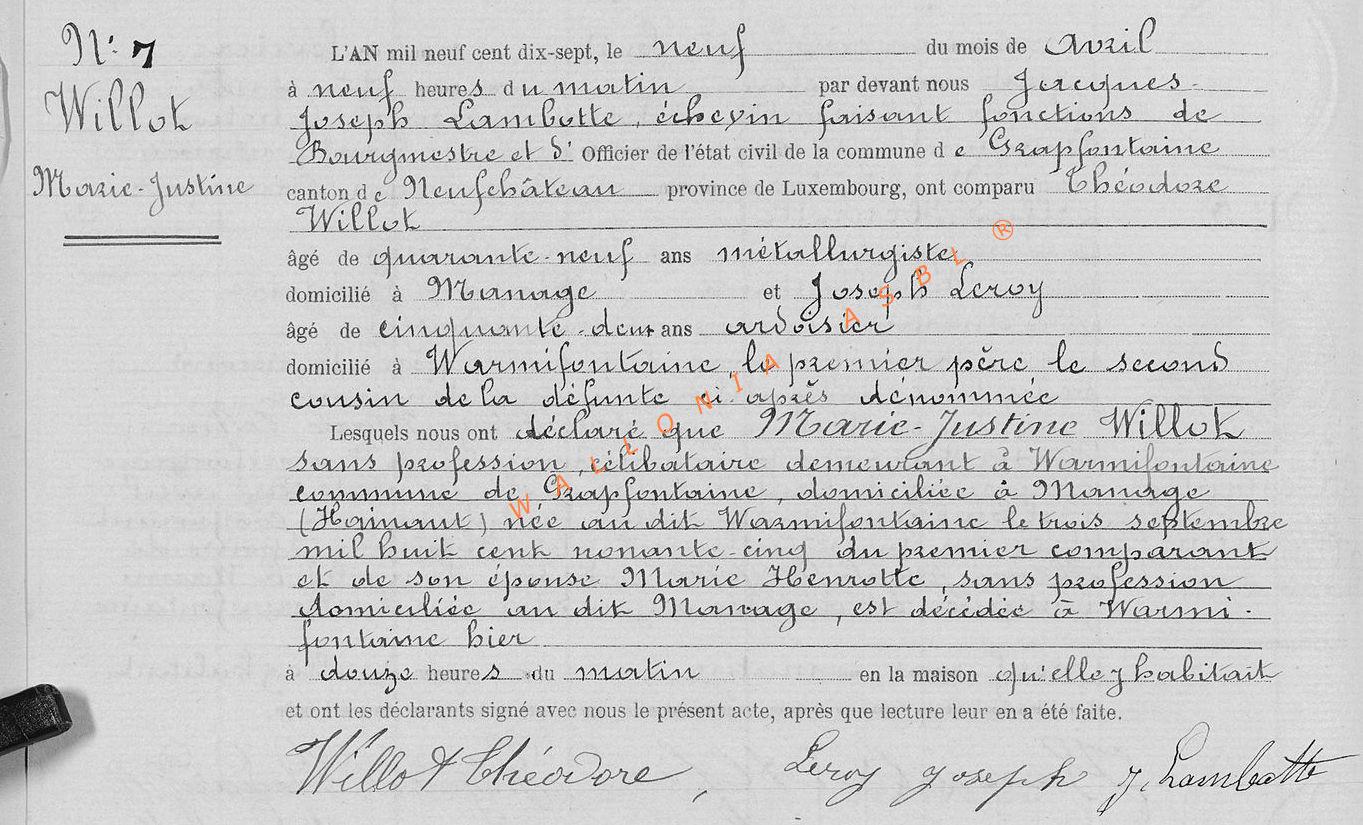 N° 7
Willot
Marie-Justine
L'AN mil neuf cent dix-sept, le neuf du mois de Avril
à neuf heures du matin par devant nous Jacques-
Joseph Lambotte, échevin faisant fonctions de
Bourgmestre et d' Officier de l'état civil de la commune de Grapfontaine
canton de Neufchâteau province de Luxembourg, ont comparu Théodore
Willot
âgé de quarante-neuf ans métallurgiste
domicilié à Manage et Joseph Leroy
âgé de cinquante-deux ans ardoisier
domicilié à Warmifontaine, le premier père le second
cousin de la défunte ci-après dénommée
Lesquels nous ont déclaré que Marie-Justine Willot
sans profession, célibataire demeurant à Warmifontaine
commune de Grapfontaine, domiciliée à Manage
(Hainaut) née au dit Warmifontaine le trois septembre
mil huit cent nonante-cinq du premier comparant
et de son épouse Marie Henrotte, sans profession
domiciliée au dit Manage, est décédée à Warmi-
fontaine hier
à douze heures du matin en la maison qu'elle y habitait
et ont les déclarants signé avec nous le présent acte, après que lecture leur en a été faite.
Willot Théodore, Leroy Joseph J. Lambotte
WALLONIA ASBL ®